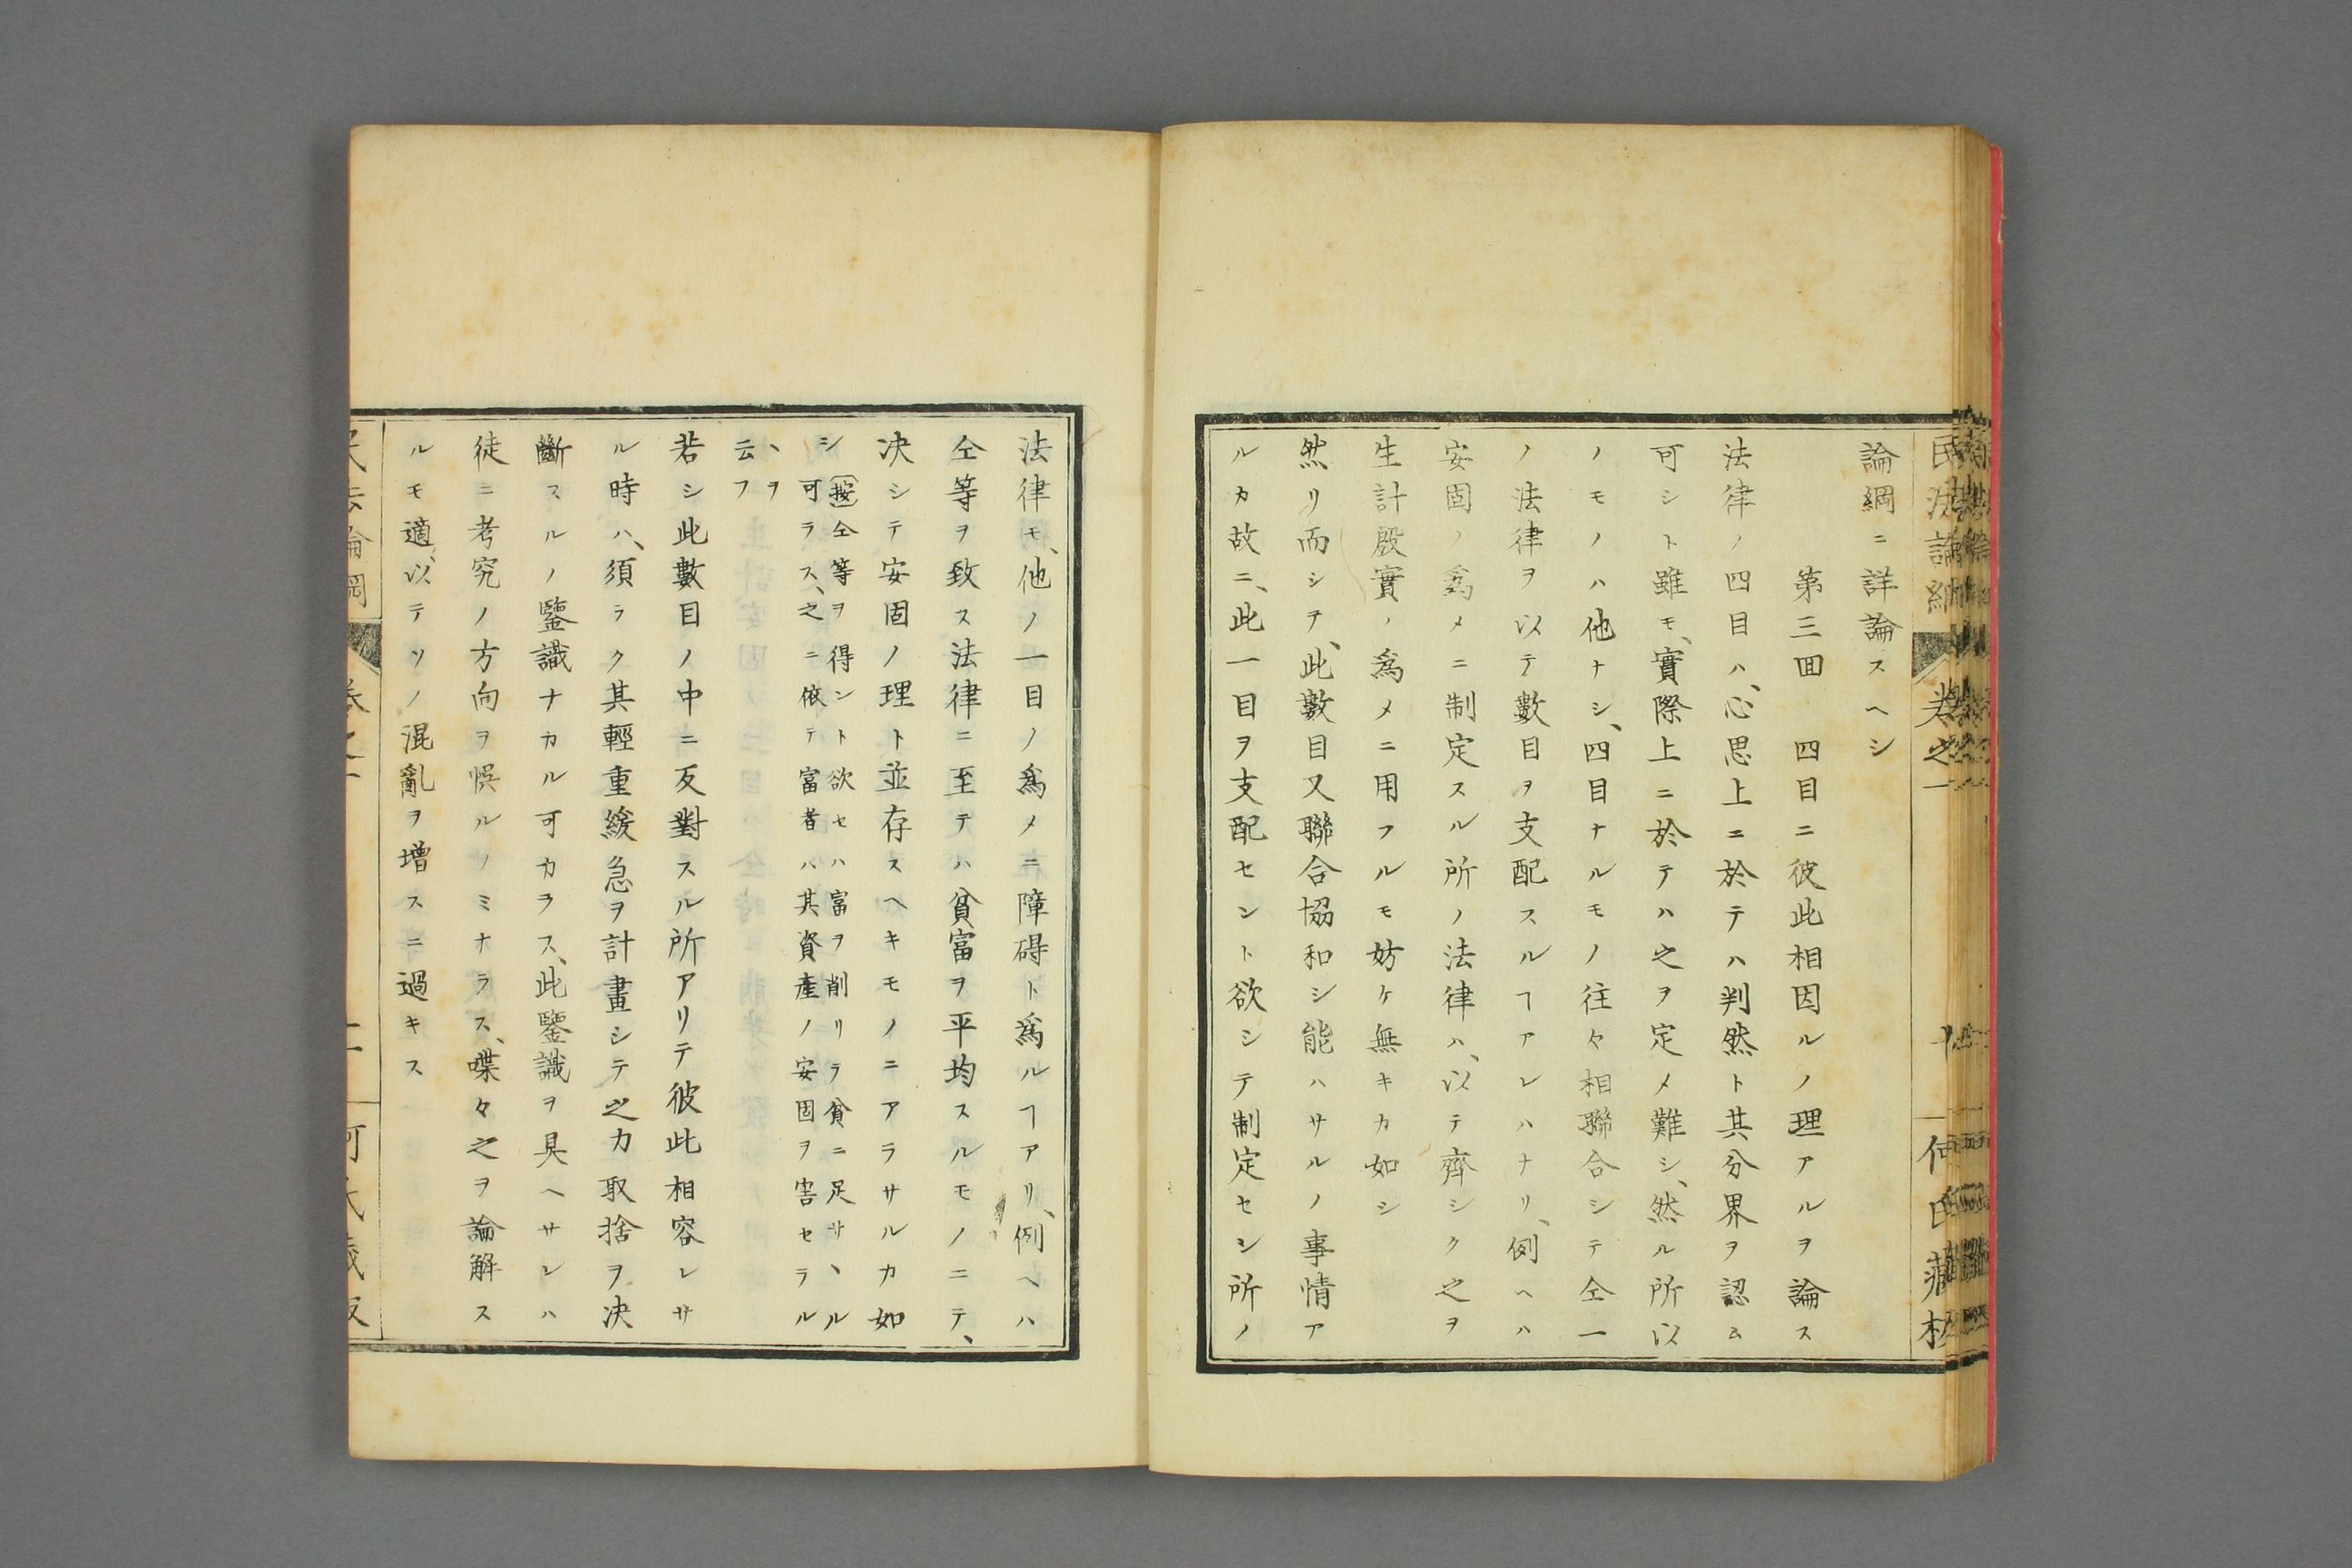 論綱ニ詳論スヘシ
第三回 四目ニ彼此相因ルノ理アルヲ論ス
法律ノ四目ハ、心思上ニ於テハ判然ト其分界ヲ認ム
可シト雖モ、實際上ニ於テハ之ヲ定メ難シ、然ル所以
ノモノハ他ナシ、四目ナルモノ往々相聯合シテ仝一
ノ法律ヲ以テ數目ヲ支配スルヿアレハナリ、例ヘハ
安固ノ爲メニ制定スル所ノ法律ハ、以テ齊シク之ヲ
生計殷實ノ爲メニ用フルモ妨ケ無キカ如シ
然リ而シテ、此數目又聯合協和シ能ハサルノ事情ア
ルカ故ニ、此一目ヲ支配セント欲シテ制定セシ所ノ
法律モ、他ノ一目ノ爲メニ障碍ト爲ルヿアリ、例ヘハ
仝等ヲ致ス法律ニ至テハ貧富ヲ平均スルモノニテ、
决シテ安固ノ理ト並存スヘキモノニアラサルカ如
シ
(按)仝等ヲ得ント欲セハ富ヲ削リラ貧ニ足サヽル
可ラス、之ニ依テ富者ハ其資產ノ安固ヲ害セラル
ヽヲ
云フ
若シ此數目ノ中ニ反對スル所アリテ彼此相容レサ
ル時ハ、須ラク其輕重緩急ヲ計畫シテ之カ取捨ヲ决
斷スルノ鑒識ナカル可カラス、此鑒識ヲ具ヘサレハ
徒ニ考究ノ方向ヲ悞ルノミナラス、喋々之ヲ論解ス
ルモ適、以テソノ混亂ヲ增スニ過キス